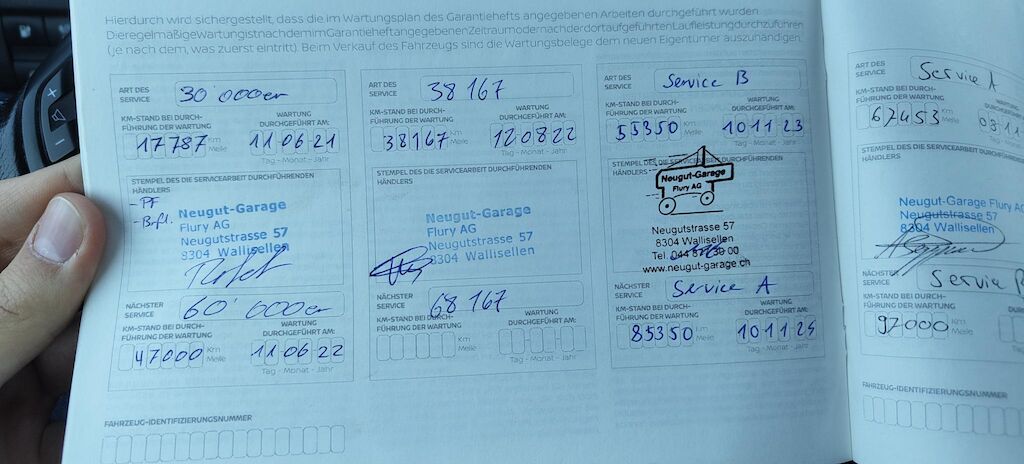 Hierdurch wird sichergestellt, dass die im Wartungsplan des Garantiehefts angegebenen Arbeiten durchgeführt wurden.
Die regelmäßige Wartung ist nach dem im Garantieheft angegebenen Zeitraum oder nach der dort aufgeführten Laufleistung durchzuführen
(je nach dem, was zuerst eintritt). Beim Verkauf des Fahrzeugs sind die Wartungsbelege dem neuen Eigentümer auszuhändigen.
ART DES
SERVICE
30'000er
KM-STAND BEI DURCH-
FÜHRUNG DER WARTUNG
WARTUNG
DURCHGEFÜHRT AM:
17787 Km
Meile
11 06 21
Tag - Monat - Jahr
STEMPEL DES DIE SERVICEARBEIT DURCHFÜHRENDEN
HÄNDLERS
- PF
Neugut-Garage
Flury AG
Neugutstrasse 57
8304 Wallisellen
NÄCHSTER
SERVICE
60'000er
KM-STAND BEI DURCH-
FÜHRUNG DER WARTUNG
WARTUNG
DURCHGEFÜHRT AM:
47000 Km
Meile
11 06 22
Tag - Monat - Jahr
FAHRZEUG-IDENTIFIZIERUNGSNUMMER
ART DES
SERVICE
38 167
KM-STAND BEI DURCH-
FÜHRUNG DER WARTUNG
WARTUNG
DURCHGEFÜHRT AM:
38167 Km
Meile
12 08 22
Tag - Monat - Jahr
STEMPEL DES DIE SERVICEARBEIT DURCHFÜHRENDEN
HÄNDLERS
Neugut-Garage
Flury AG
Neugutstrasse 57
8304 Wallisellen
NÄCHSTER
SERVICE
68 167
KM-STAND BEI DURCH-
FÜHRUNG DER WARTUNG
WARTUNG
DURCHGEFÜHRT AM:
Km
Meile
Tag - Monat - Jahr
ART DES
SERVICE
Service B
KM-STAND BEI DURCH-
FÜHRUNG DER WARTUNG
WARTUNG
DURCHGEFÜHRT AM:
55350 Km
Meile
10 11 23
Tag - Monat - Jahr
STEMPEL DES DIE SERVICEARBEIT DURCHFÜHRENDEN
HÄNDLERS
Neugut-Garage
Flury AG
Neugutstrasse 57
8304 Wallisellen
Tel. 044 00
www.neugut-garage.ch
NÄCHSTER
SERVICE
Service A
KM-STAND BEI DURCH-
FÜHRUNG DER WARTUNG
WARTUNG
DURCHGEFÜHRT AM:
85350 Km
Meile
10 11 25
Tag - Monat - Jahr
ART DES
SERVICE
Service A
KM-STAND BEI DURCH-
FÜHRUNG DER WARTUNG
67453 Km
Meile
STEMPEL DES DIE SERVICEARBEIT
HÄNDLERS
Neugut-Garage Flury AG
Neugutstrasse 57
8304 Wallisellen
NÄCHSTER
SERVICE
Service
KM-STAND BEI DURCH-
FÜHRUNG DER WARTUNG
97000 Km
Meile
FAHRZEUG-IDENTIFIZIERUNGSNUMMER